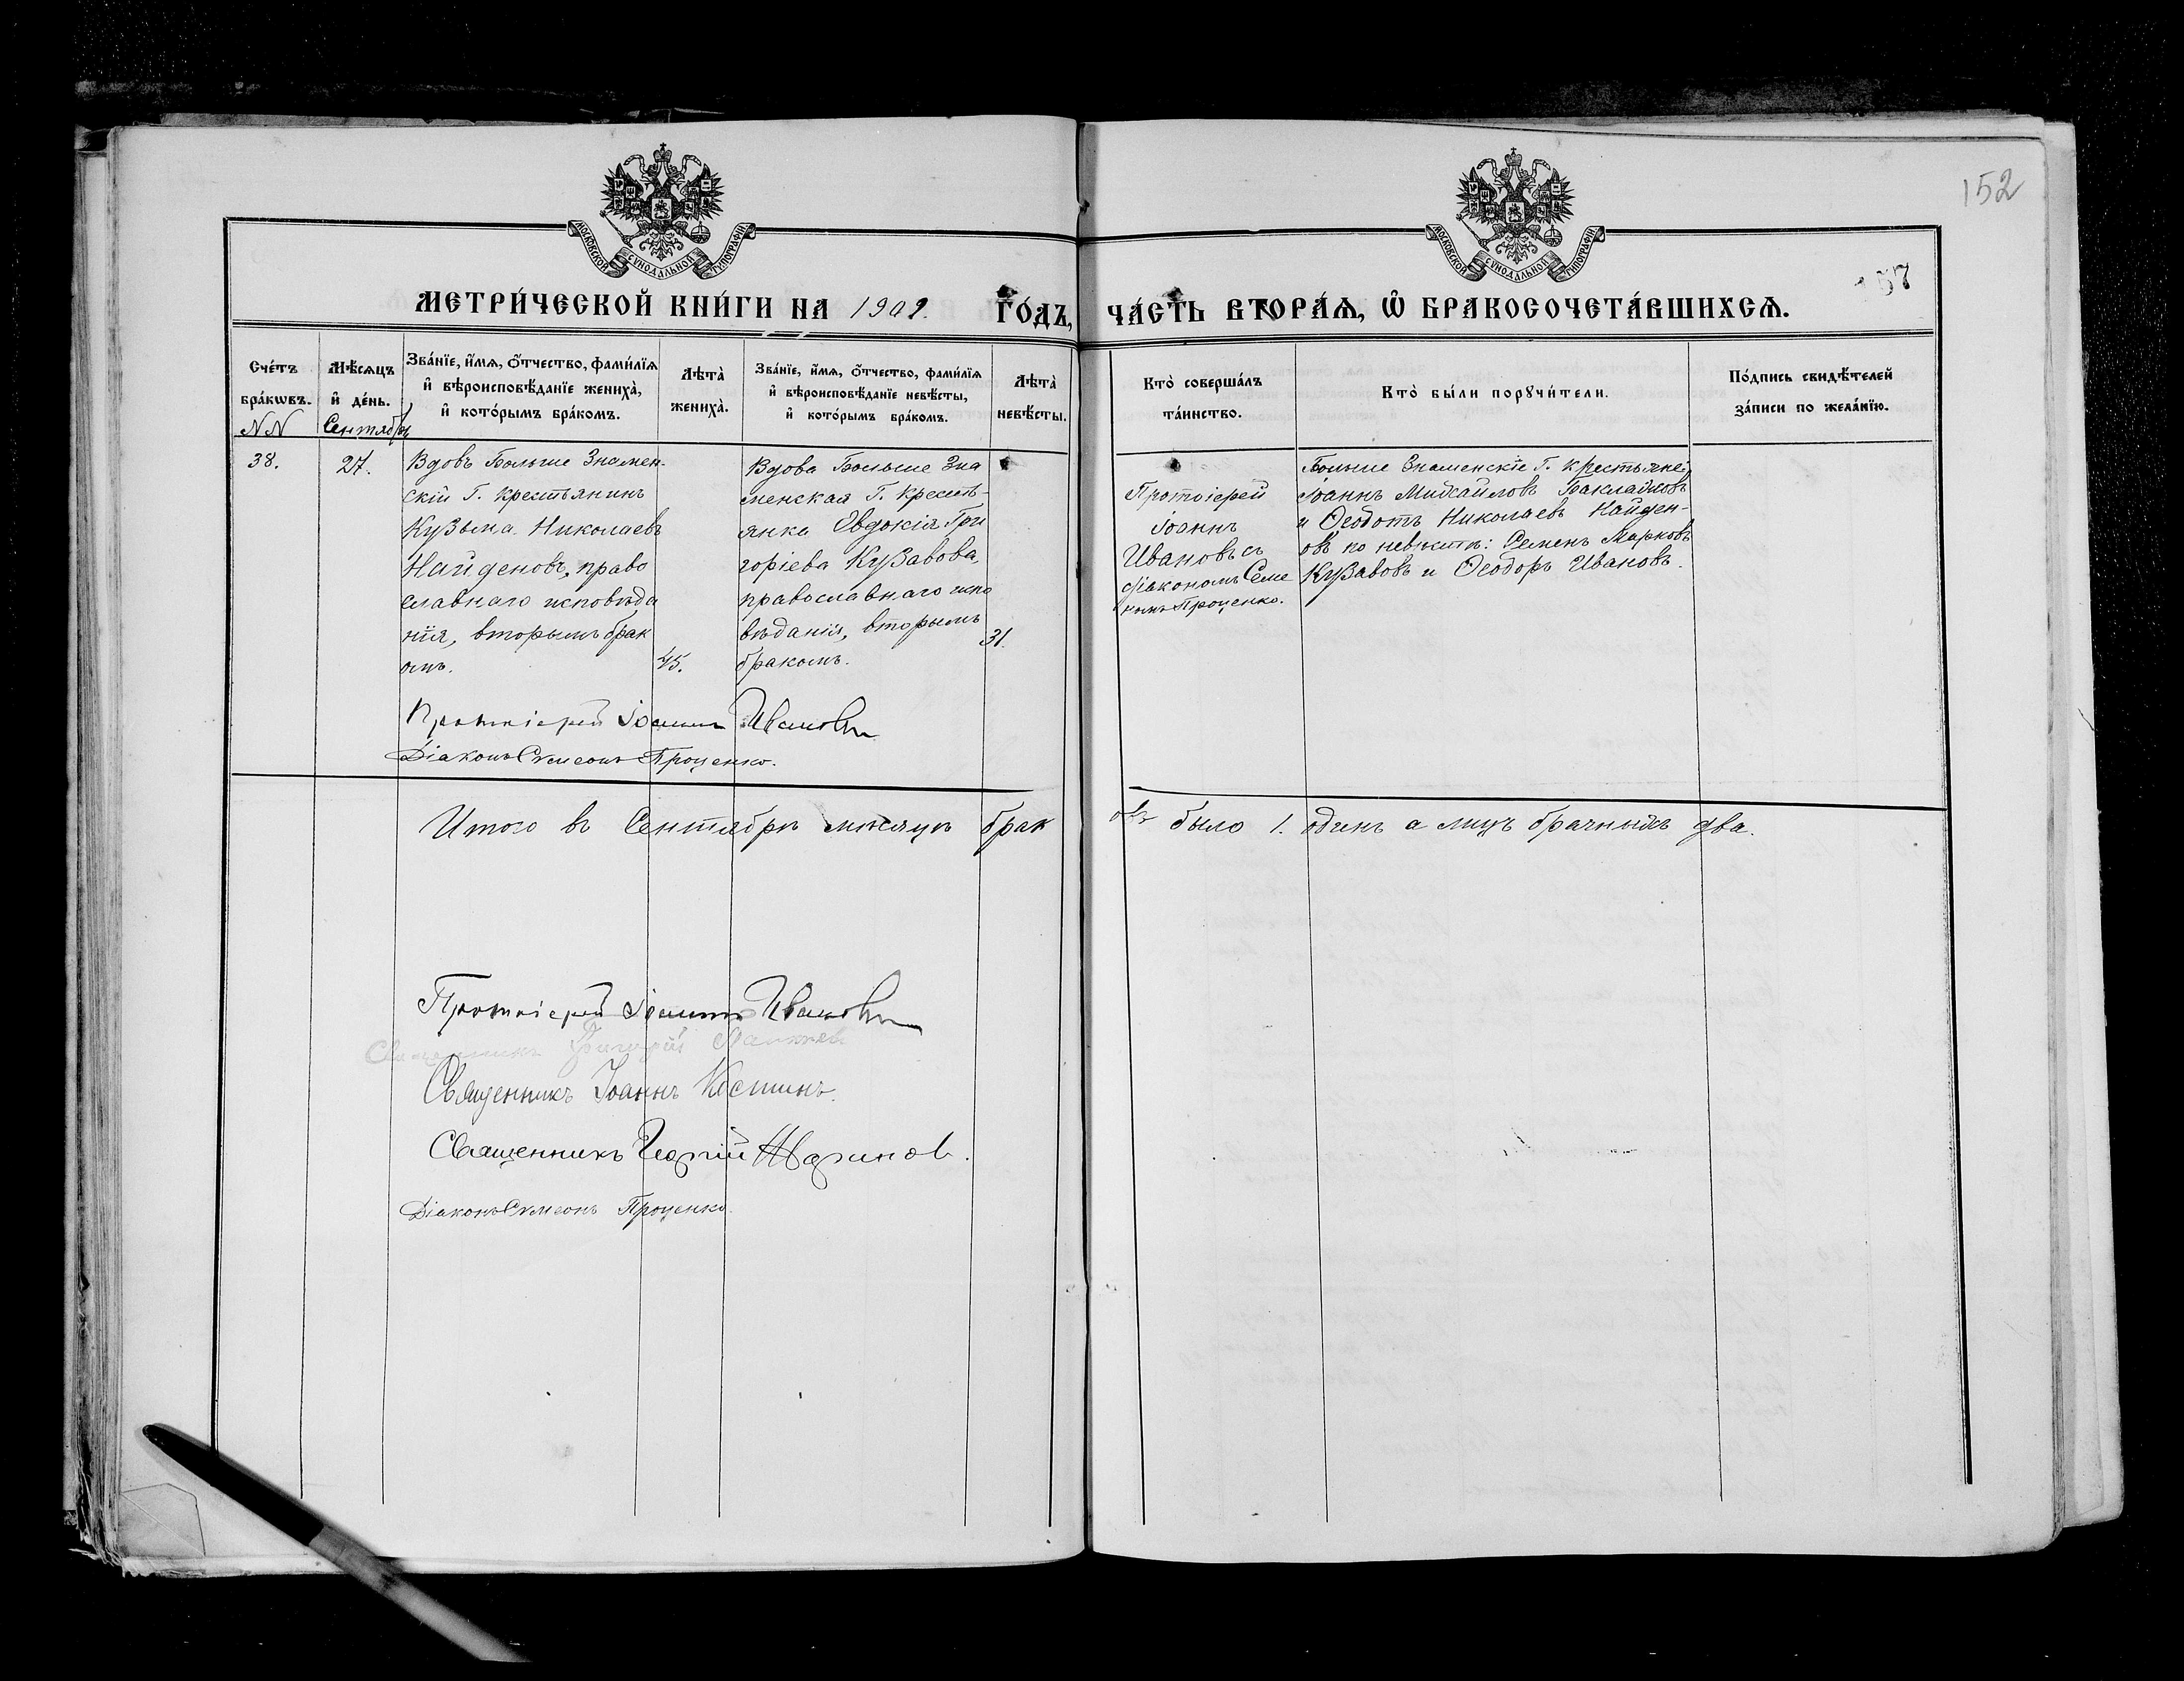 152
157
МОСКОВСКОЙ СѴНОДАЛЬНОЙ ТИПОГРАФІИ
МОСКОВСКОЙ СѴНОДАЛЬНОЙ ТИПОГРАФІИ
МЕТРИ́ЧЕСКОЙ КНИ́ГИ НА 1909. ГО́ДЪ, ЧА́СТЬ ВТОРА́Ѧ, Ѽ БРАКОСОЧЕТА́ВШИХСѦ.
Сче́тъ
бра́кѡвъ.
NN
Мѣ́сяцъ
и҆ де́нь.
Сентябрь
Зва́нїе, и҆́мѧ, ѻ҆́тчество, фами́лїѧ
и҆ вѣроисповѣ́данїе жениха̀,
и҆ кото́рымъ бра́комъ.
Лѣта̀
жениха̀.
Зва́нїе, и҆́мѧ, ѻ҆́тчество, фами́лїѧ
и҆ вѣроисповѣ́данїе невѣ́сты,
и҆ кото́рымъ бра́комъ.
Лѣта̀
невѣ́сты.
Кто̀ соверша́лъ
та́инство.
Кто̀ бы́ли порꙋчи́тели.
По́дпись свидѣ́телей
за́писи по жела́нїю.
38.
27.
Вдовъ Больше Знамен-
скій Г. крестьянинъ
Кузьма Николаевъ
Найденовъ, право
славнаго исповѣда
нія, вторымъ брак
омъ.
45.
Вдова Больше Зна
менская Г. кресть-
янка Евдокія Гри
горіева Кузавова,
православнаго испо
вѣданія, вторымъ
бракомъ.
31.
Протоіерей
Іоаннъ
Ивановъ съ
діакономъ Семе
номъ Проценко.
Больше Знаменскіе Г. крестьяне:
Іоаннъ Михайловъ
и Ѳеодотъ Николаевъ Найден-
овъ по невѣстѣ: Семенъ Марковъ
Кузавовъ и Ѳеодоръ Ивановъ.
Протоіерей Іоаннъ Ивановъ
Діаконъ Сѵмеонъ Проценко.
Итого въ Сентябрѣ мѣсяцѣ брак
овъ было 1. одинъ а лицъ брачныхъ два.
Протоіерей Іоаннъ Ивановъ
Священникъ Григорій
Священникъ Іоаннъ Костинъ.
Священникъ Георгій
Діаконъ Сѵмеонъ Проценко.